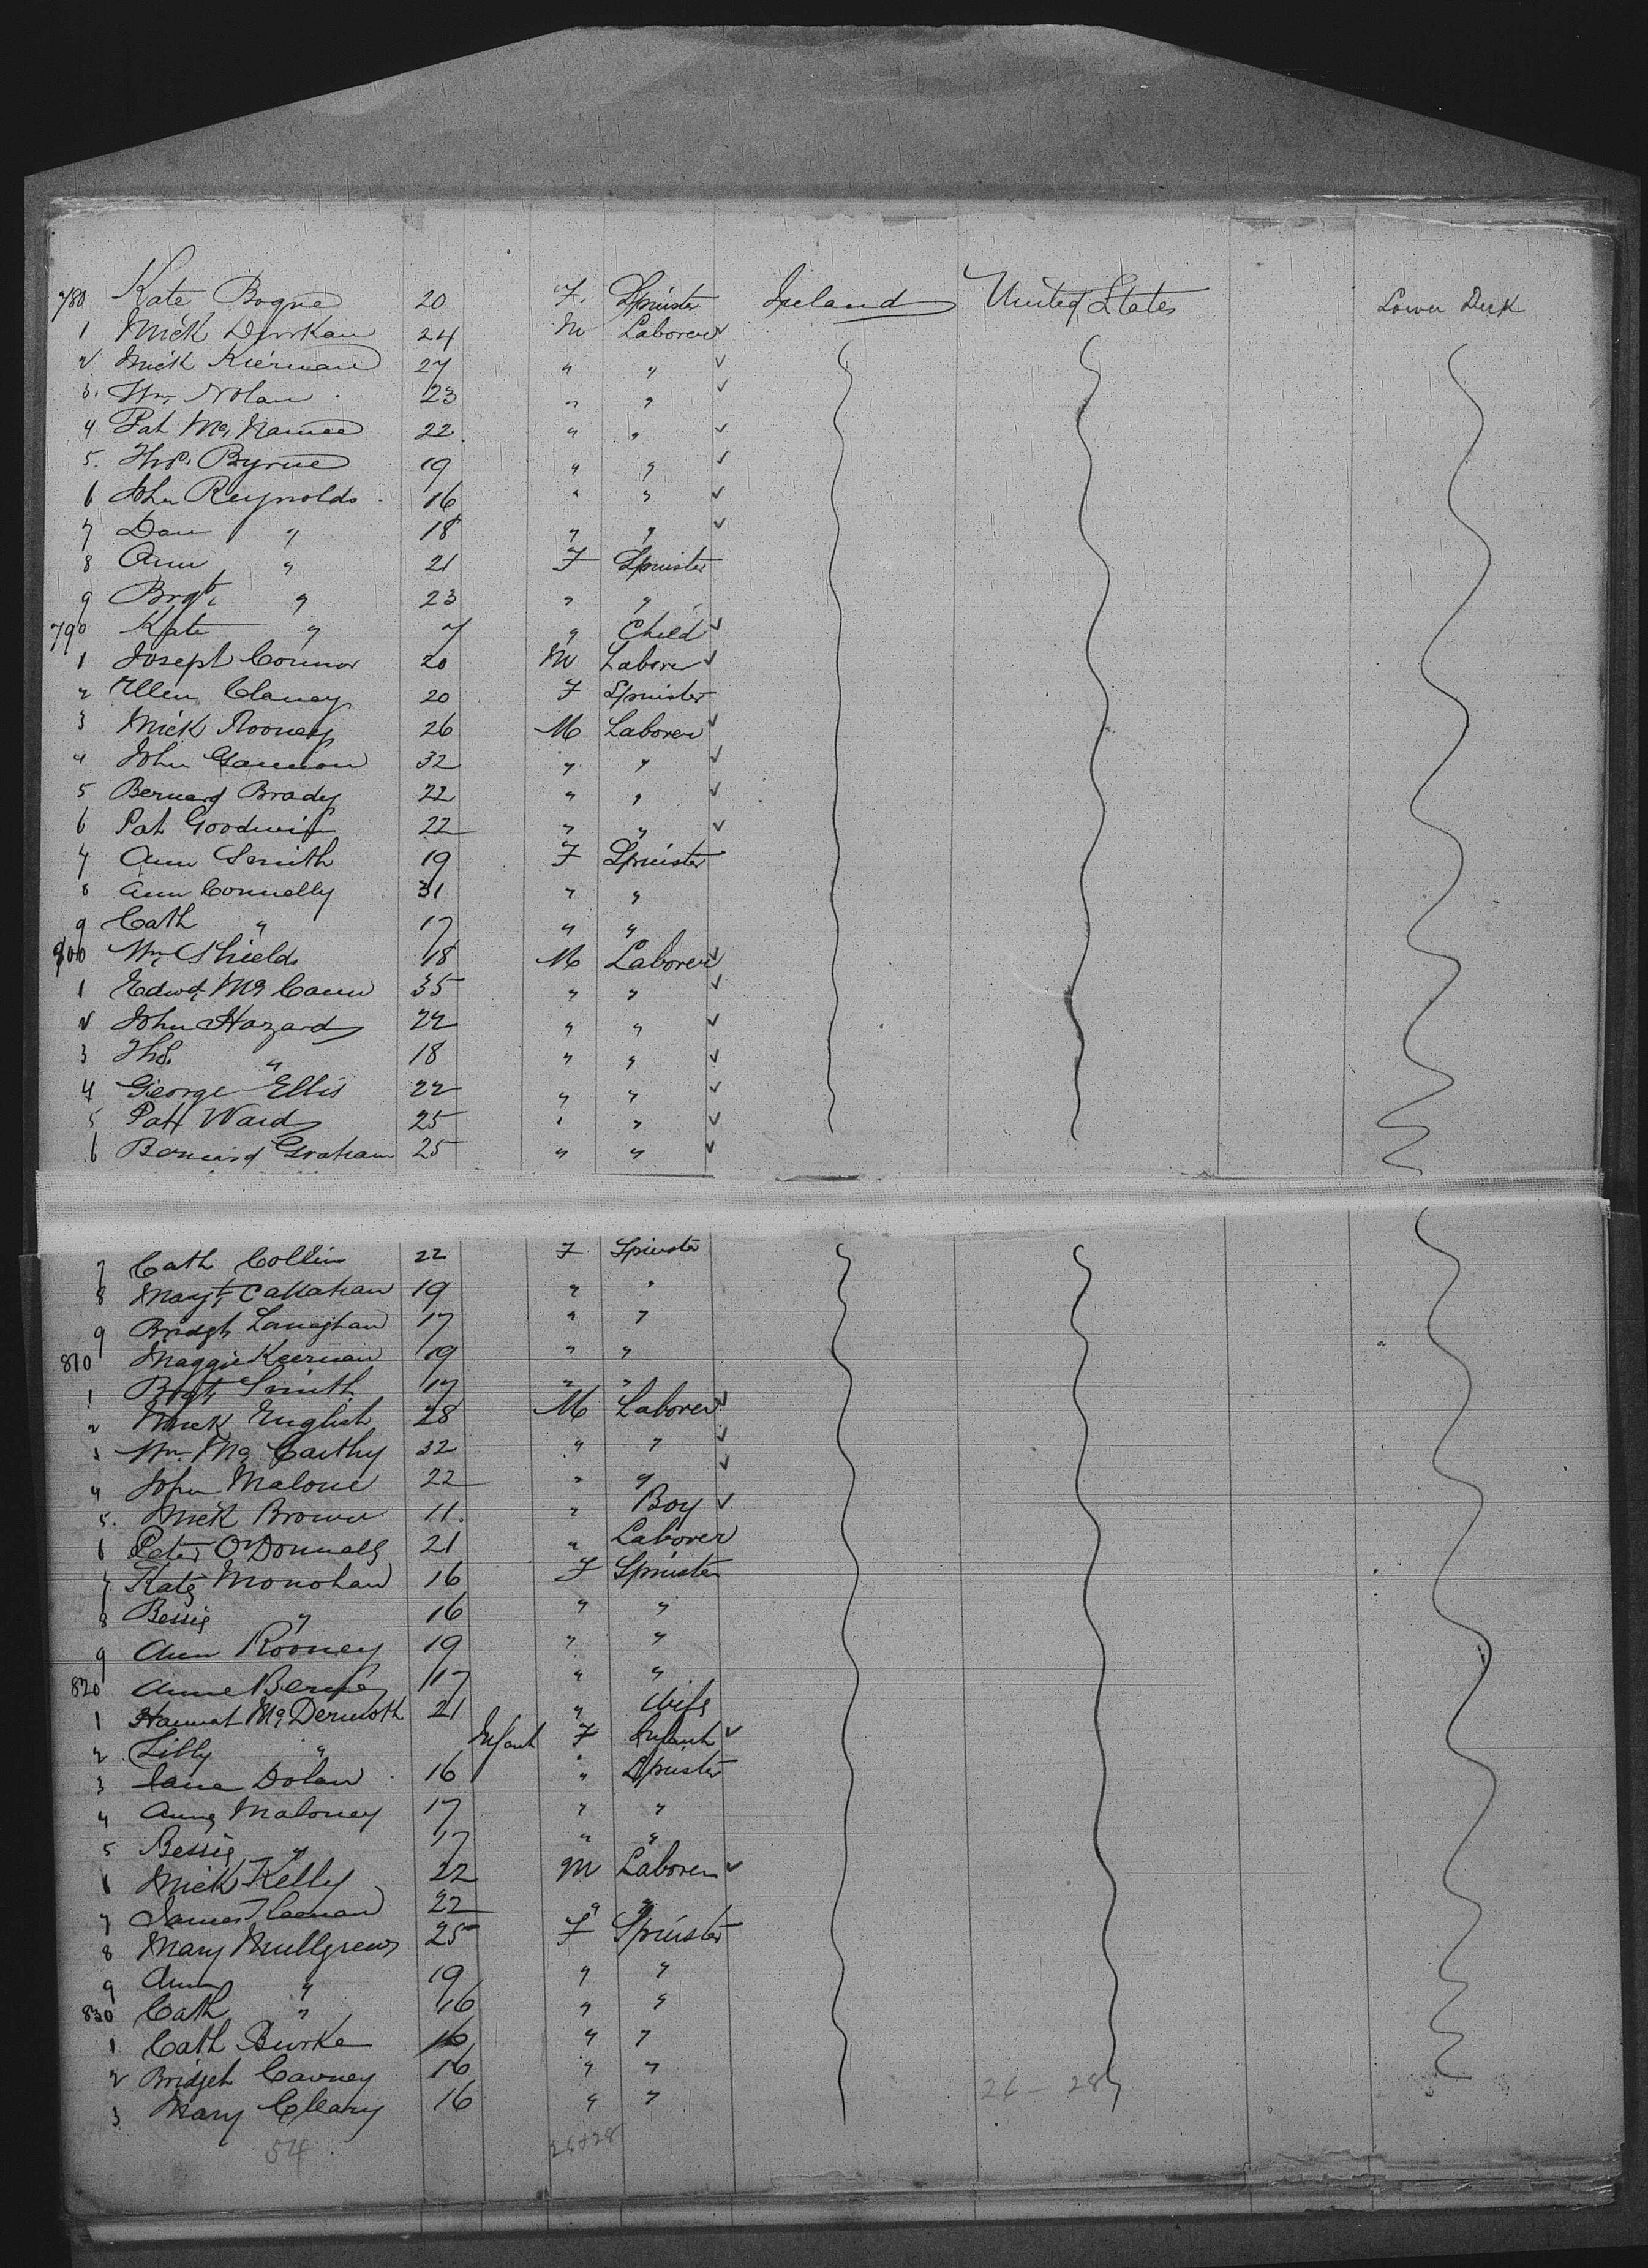 780 Kate Bogue 20 F. Spinster Ireland United States Lower Deck
1 Mick Durkan 24 M Laborer ✓
2 Mick Kiernan 27 " " ✓
3. Wm Nolan 23 " " ✓
4 Pat McNamee 22 " " ✓
5. Thos. Byrne 19 " " ✓
6 John Reynolds 16 " " ✓
7 Dan " 18 " " ✓
8 Ann " 21 F Spinster
9 Brgt. " 23 " "
790 Kate " 7 " Child ✓
1 Joseph Connor 20 M Laborer ✓
2 Ellen Clancy 20 F Spinster
3 Mick Rooney 26 M Laborer ✓
4 John Gannon 32 " " ✓
5 Bernard Brady 22 " " ✓
6 Pat Goodwin 22 " " ✓
7 Ann Smith 19 F Spinster
8 Ann Connelly 31 " "
9 Cath " 17 " "
800 Wm Shields 18 M Laborer ✓
1 Edwd McCann 35 " " ✓
2 John Hazard 22 " " ✓
3 Thos. " 18 " " ✓
4 George Ellis 22 " " ✓
5 Patt Ward 25 " " ✓
6 Bernard Graham 25 " " ✓
7 Cath Collin 22 F Spinster
8 Margt Callahan 19 " "
9 Bridgt Lanaghan 17 " "
810 Maggie Keernan 19 " "
1 Brgt Smith 17 " "
2 Mick English 28 M Laborer ✓
3 Wm McCarthy 32 " " ✓
4 John Malone 22 " " ✓
5. Mick Brown 11. " Boy ✓
6 Peter O'Donnell 21 " Laborer
7 Kate Monohan 16 F Spinster
8 Bessie " 16 " "
9 Ann Rooney 19 " "
820 Anne 17 " "
1 Hannah McDermoth 21 " Wife
2 Lilly " Infant F Infant ✓
3 Jane Dolan 16 " Spinster
4 Anne Maloney 17 " "
5 Bessie " 17 " "
6 Mick Kelly 22 M Laborer ✓
7 James Keenan 22 " "
8 Mary Mullgrew 25 F Spinster
9 Ann " 19 " "
830 Cath " 16 " "
1 Cath Burke 16 " "
2 Bridget Cavney 16 " "
3 Mary Cleary 16 " "
26 - 28
54 26+28